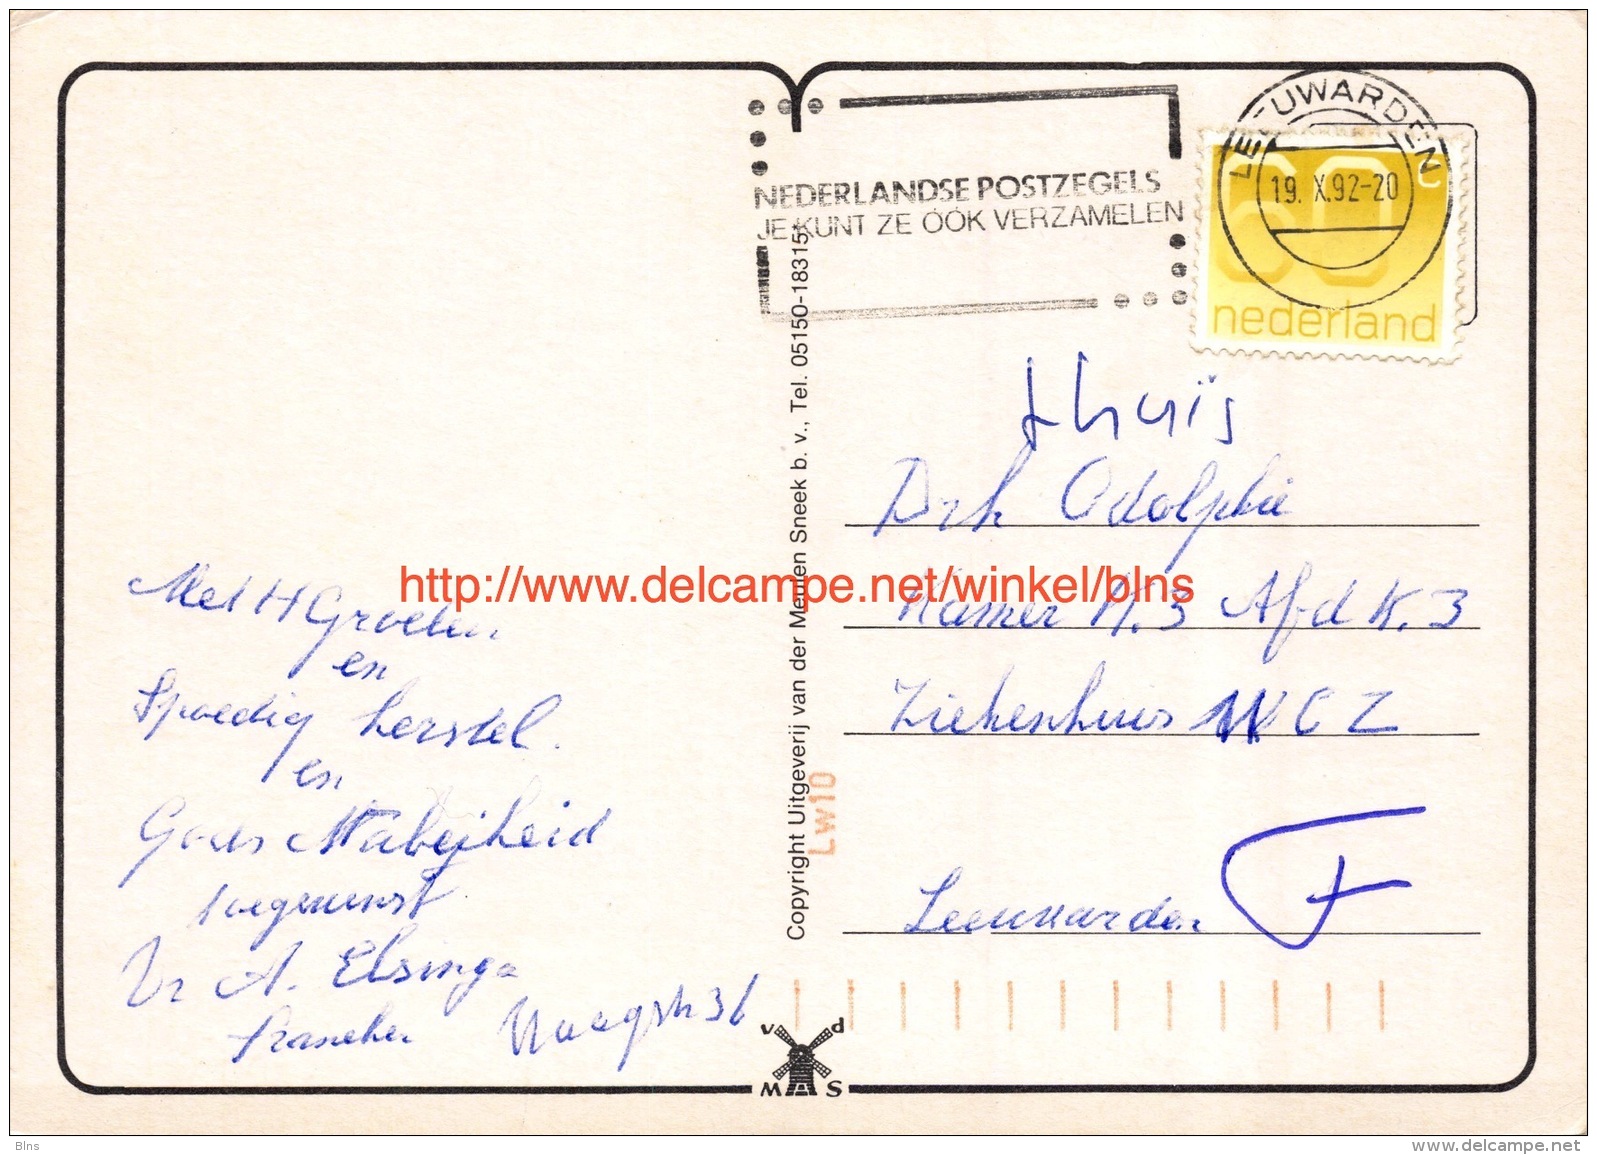 LEEUWARDEN
19. X.92-20
NEDERLANDSE POSTZEGELS
JE KUNT ZE ÓÓK VERZAMELEN
60 c
nederland
thuis
Drh Odolphie
Kamer K.3 Afd K.3
Ziekenhuis MCZ
Leeuwarden
F
Met H Groeten
en
Spoedig herstel.
en
Gods Nabijheid
toegewenst
Vr A. Elsinga
Franeker
http://www.delcampe.net/winkel/blns
Copyright Uitgeverij van der Meulen Sneek b. v., Tel. 05150-18315*
LW10
v d
MAS
Blns
www.delcampe.net